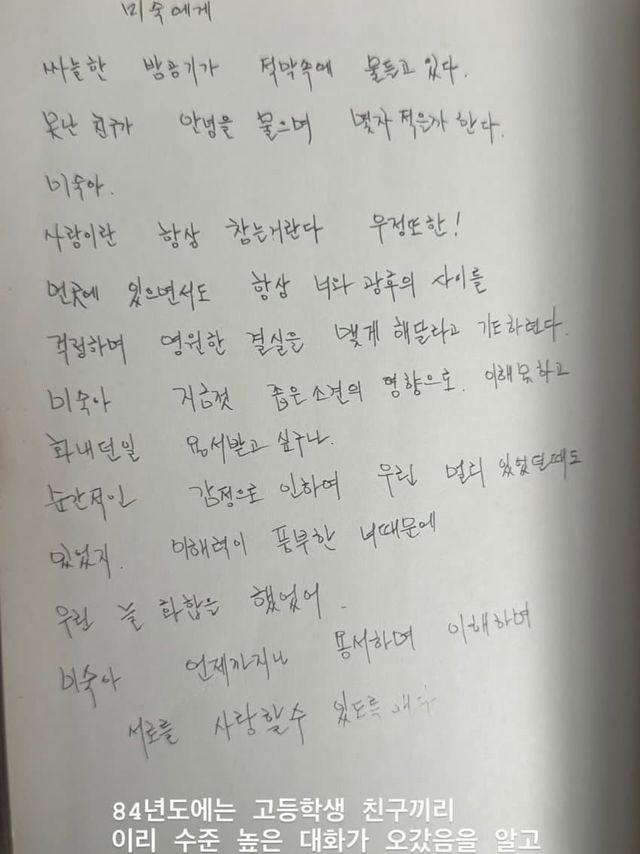 미숙에게
싸늘한 밤공기가 적막속에 물들고 있다.
못난 친구가 안녕을 물으며 몇자 적을까 한다.
미숙아.
사랑이란 항상 참는거란다 우정또한!
먼곳에 있으면서도 항상 너와 광후의 사이를
걱정하며 영원한 결실을 맺게 해달라고 기도하련다.
미숙아 지금껏 좁은소견의 영향으로. 이해못하고
화내던일 용서받고 싶구나.
순간적인 감정으로 인하여 우린 멀리 있었던때도
있었지. 이해력이 풍부한 너때문에
우린 늘 화합을 했었어.
미숙아 언제까지나 용서하며 이해하며
서로를 사랑할수 있도록
84년도에는 고등학생 친구끼리
이리 수준 높은 대화가 오갔음을 알고